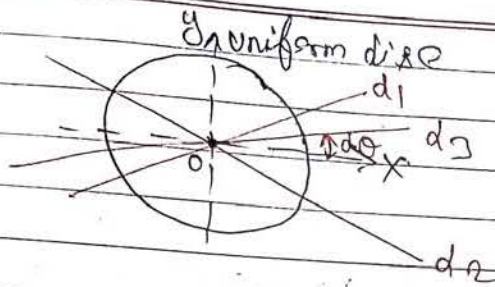 y uniform disc
d1
d3
dθ
x
O
d2